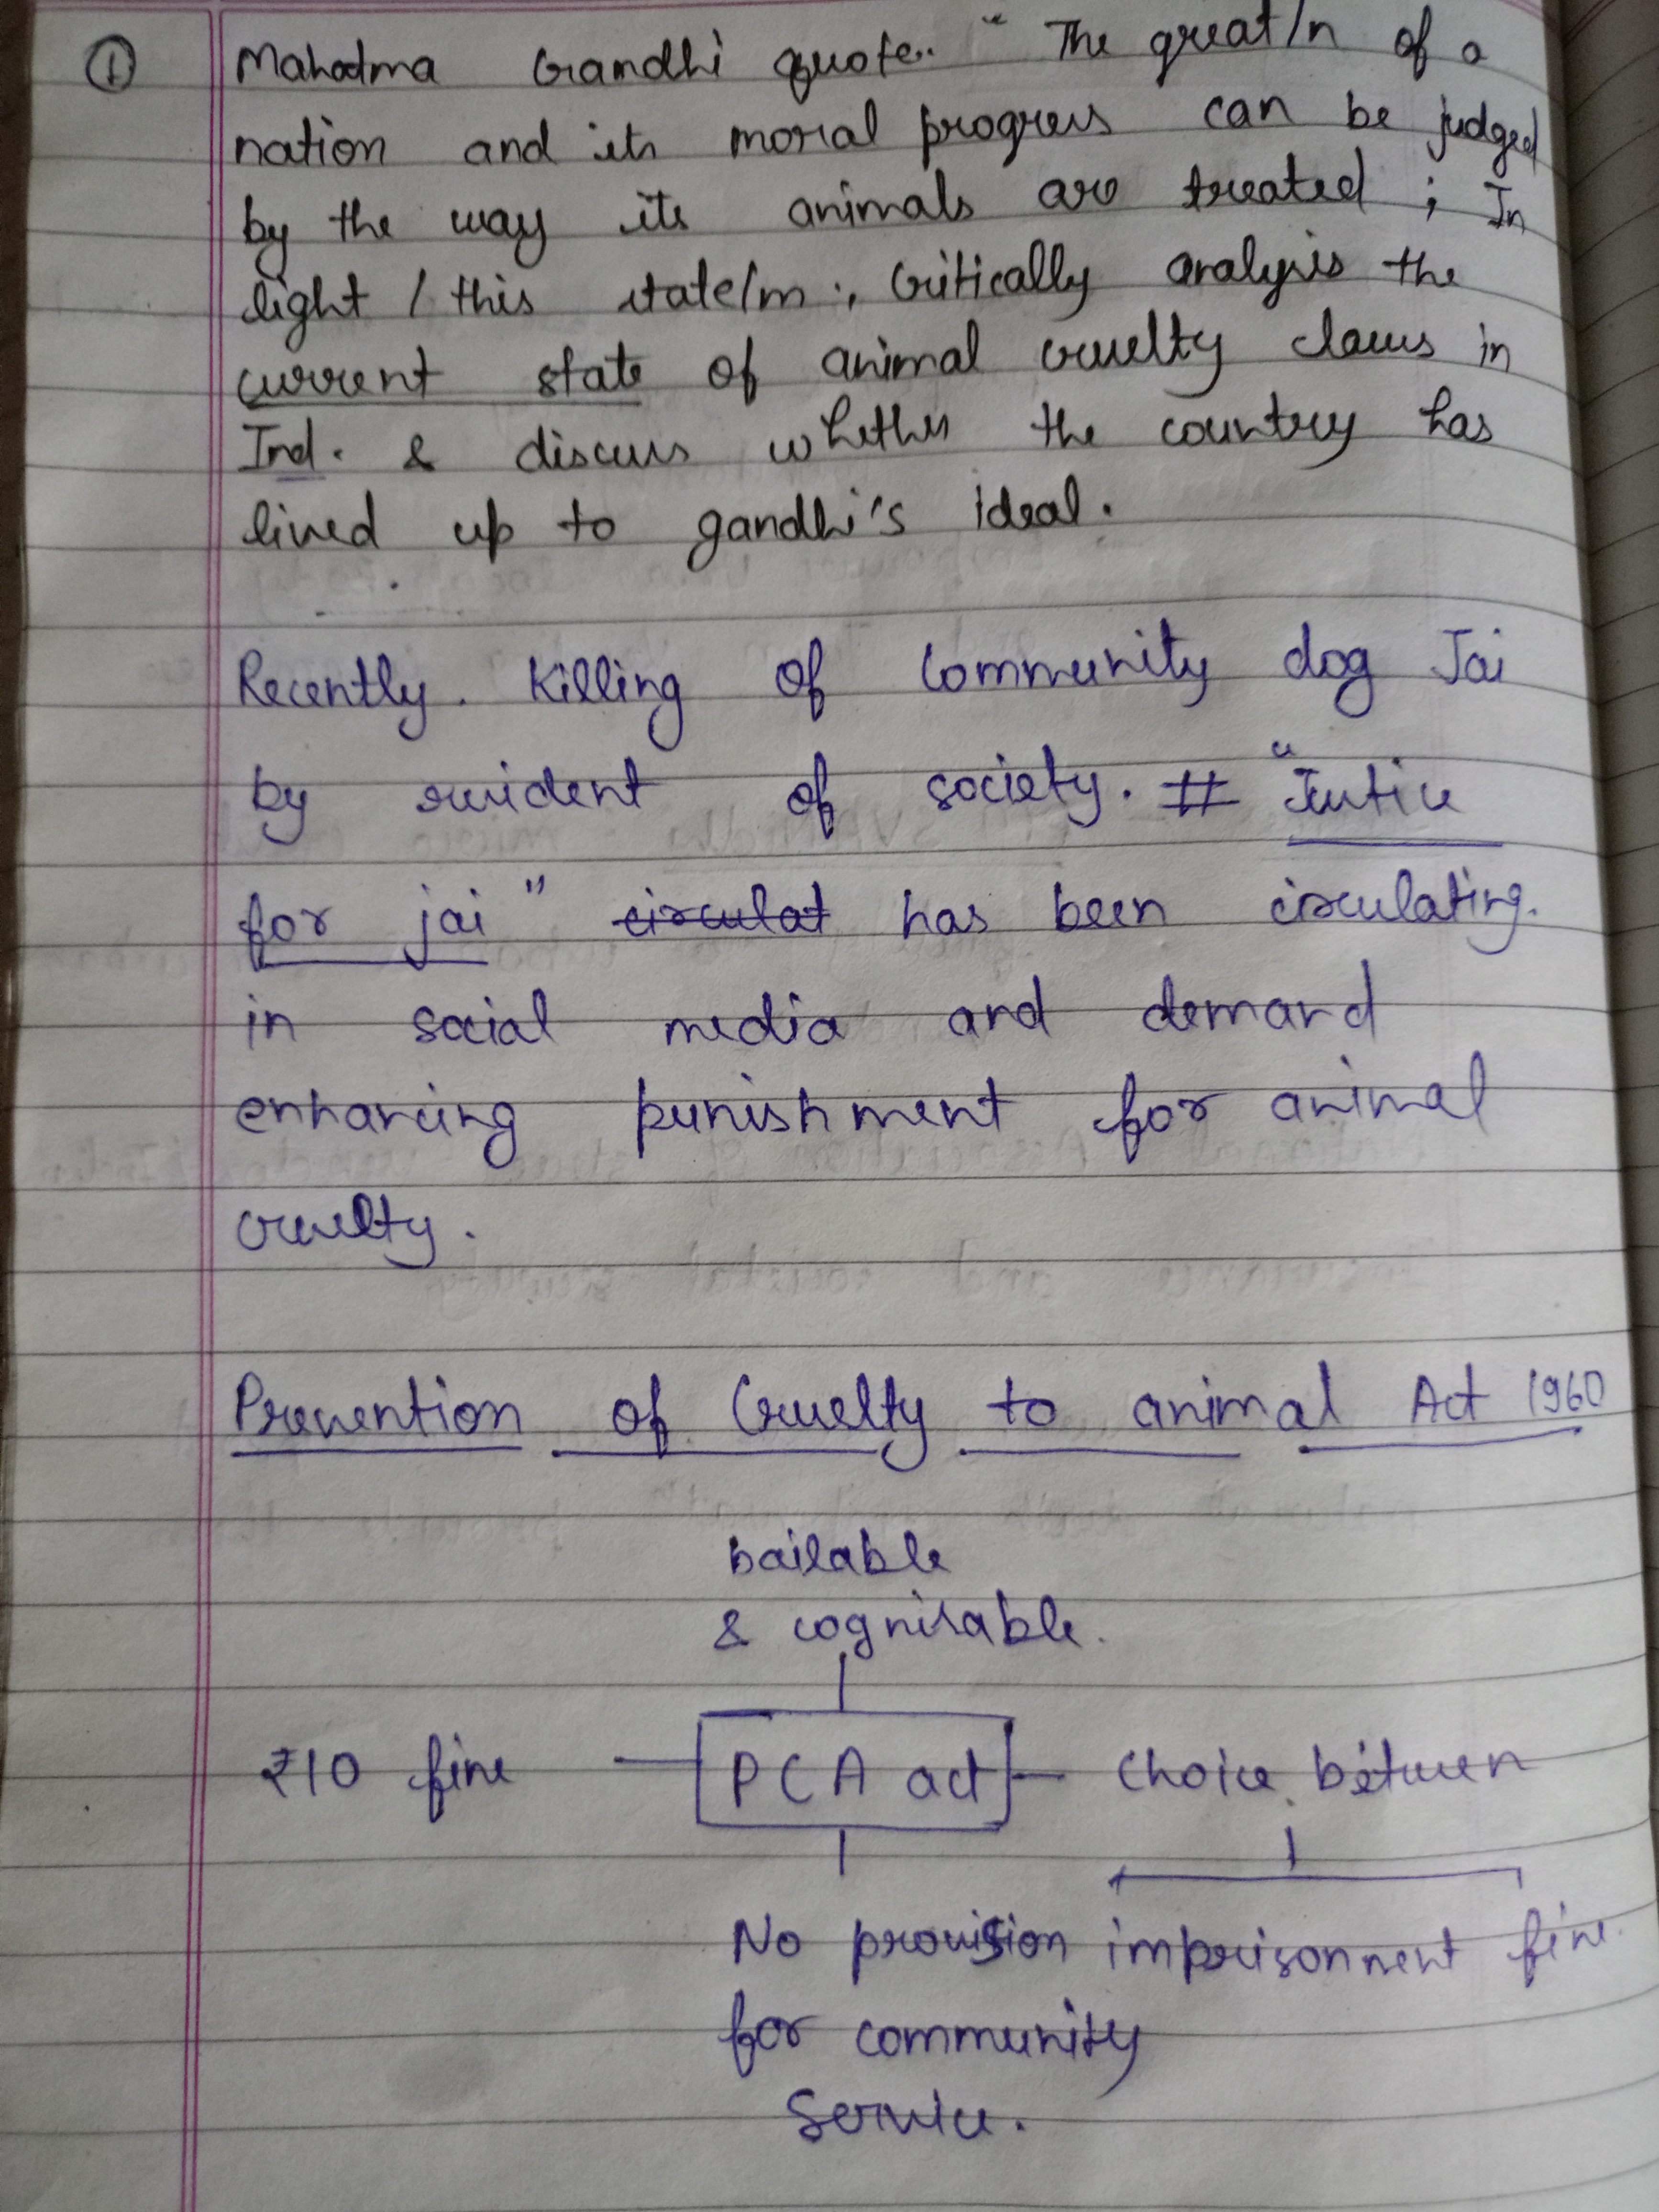 ①
Mahatma Gandhi quote.. "The great/n of a
nation and its moral progress can be judged
by the way its animals are treated ; In
light / this state/m ., Critically analysis the
current state of animal cruelty laws in
Ind. & discuss whether the country has
lived up to gandhi's ideal.
Recently. Killing of Community dog Jai
by resident of society. # "Justice
for jai" circulat has been circulating.
in social media and demand
enhancing punishment for animal
cruelty.
Prevention of Cruelty to animal Act 1960
bailable
& cognisable.
₹10 fine — PCA act — Choice between
No provision imprisonment fine.
for community
Service.